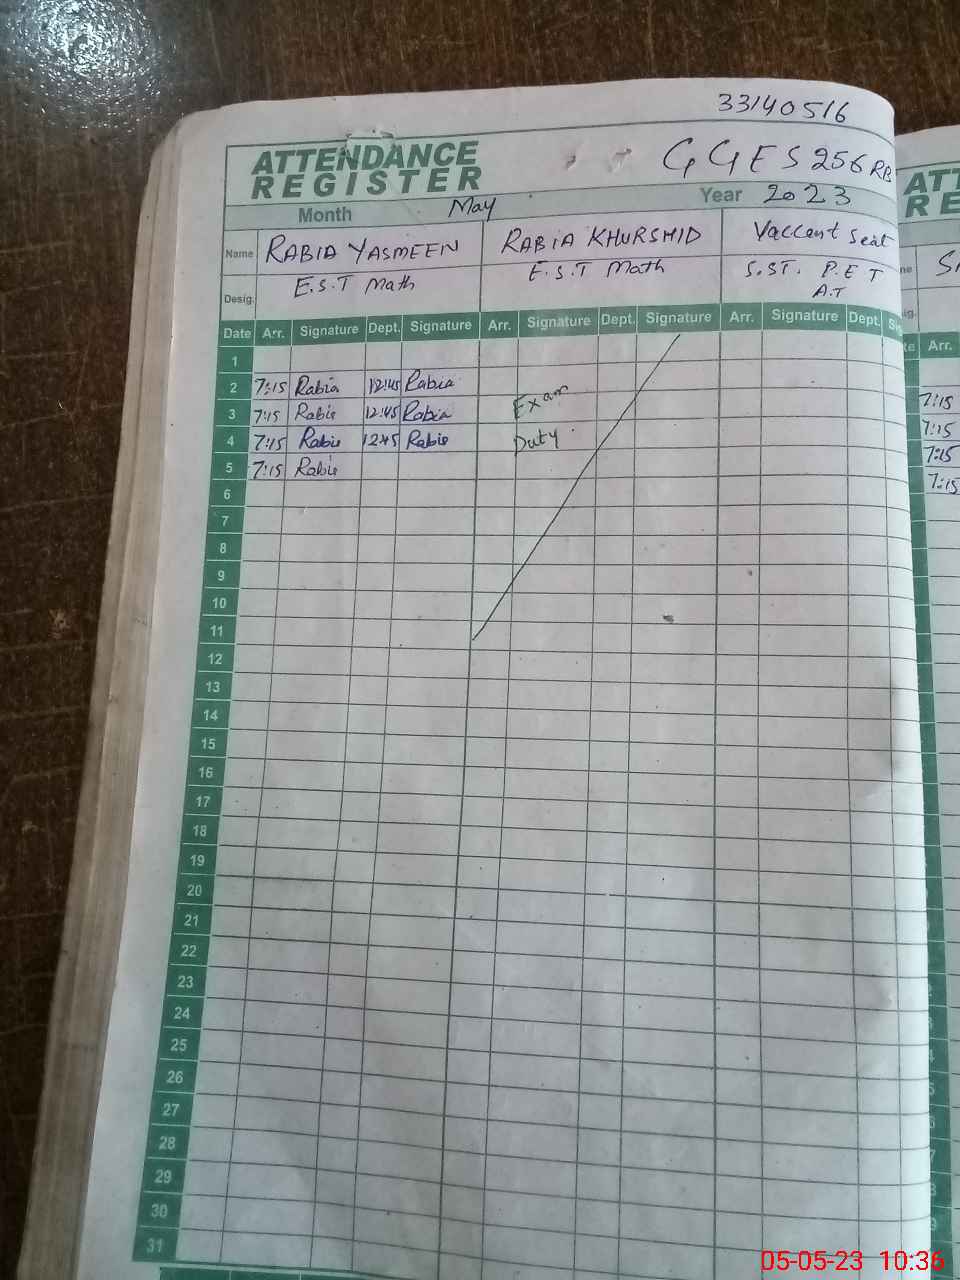 33140516
ATTENDANCE
REGISTER
GGES 256 RB
Month May Year 2023
Name RABIA YASMEEN RABIA KHURSHID Vaccent Seat
Desig. E.S.T Math E.S.T Math S.ST. P.E T
A.T
Date Arr. Signature Dept. Signature Arr. Signature Dept. Signature Arr. Signature Dept. Sig
1
2 7:15 Rabia 12:45 Rabia
3 7:15 Rabia 12:45 Rabia Exam
4 7:15 Rabia 12:45 Rabia Duty
5 7:15 Rabia
6
7
8
9
10
11
12
13
14
15
16
17
18
19
20
21
22
23
24
25
26
27
28
29
30
31
ATT
RE
Arr.
7:15
7:15
7:15
7:15
05-05-23 10:36